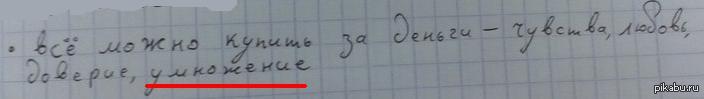 • всё можно купить за деньги – чувства, любовь,
доверие, умножение
pikabu.ru